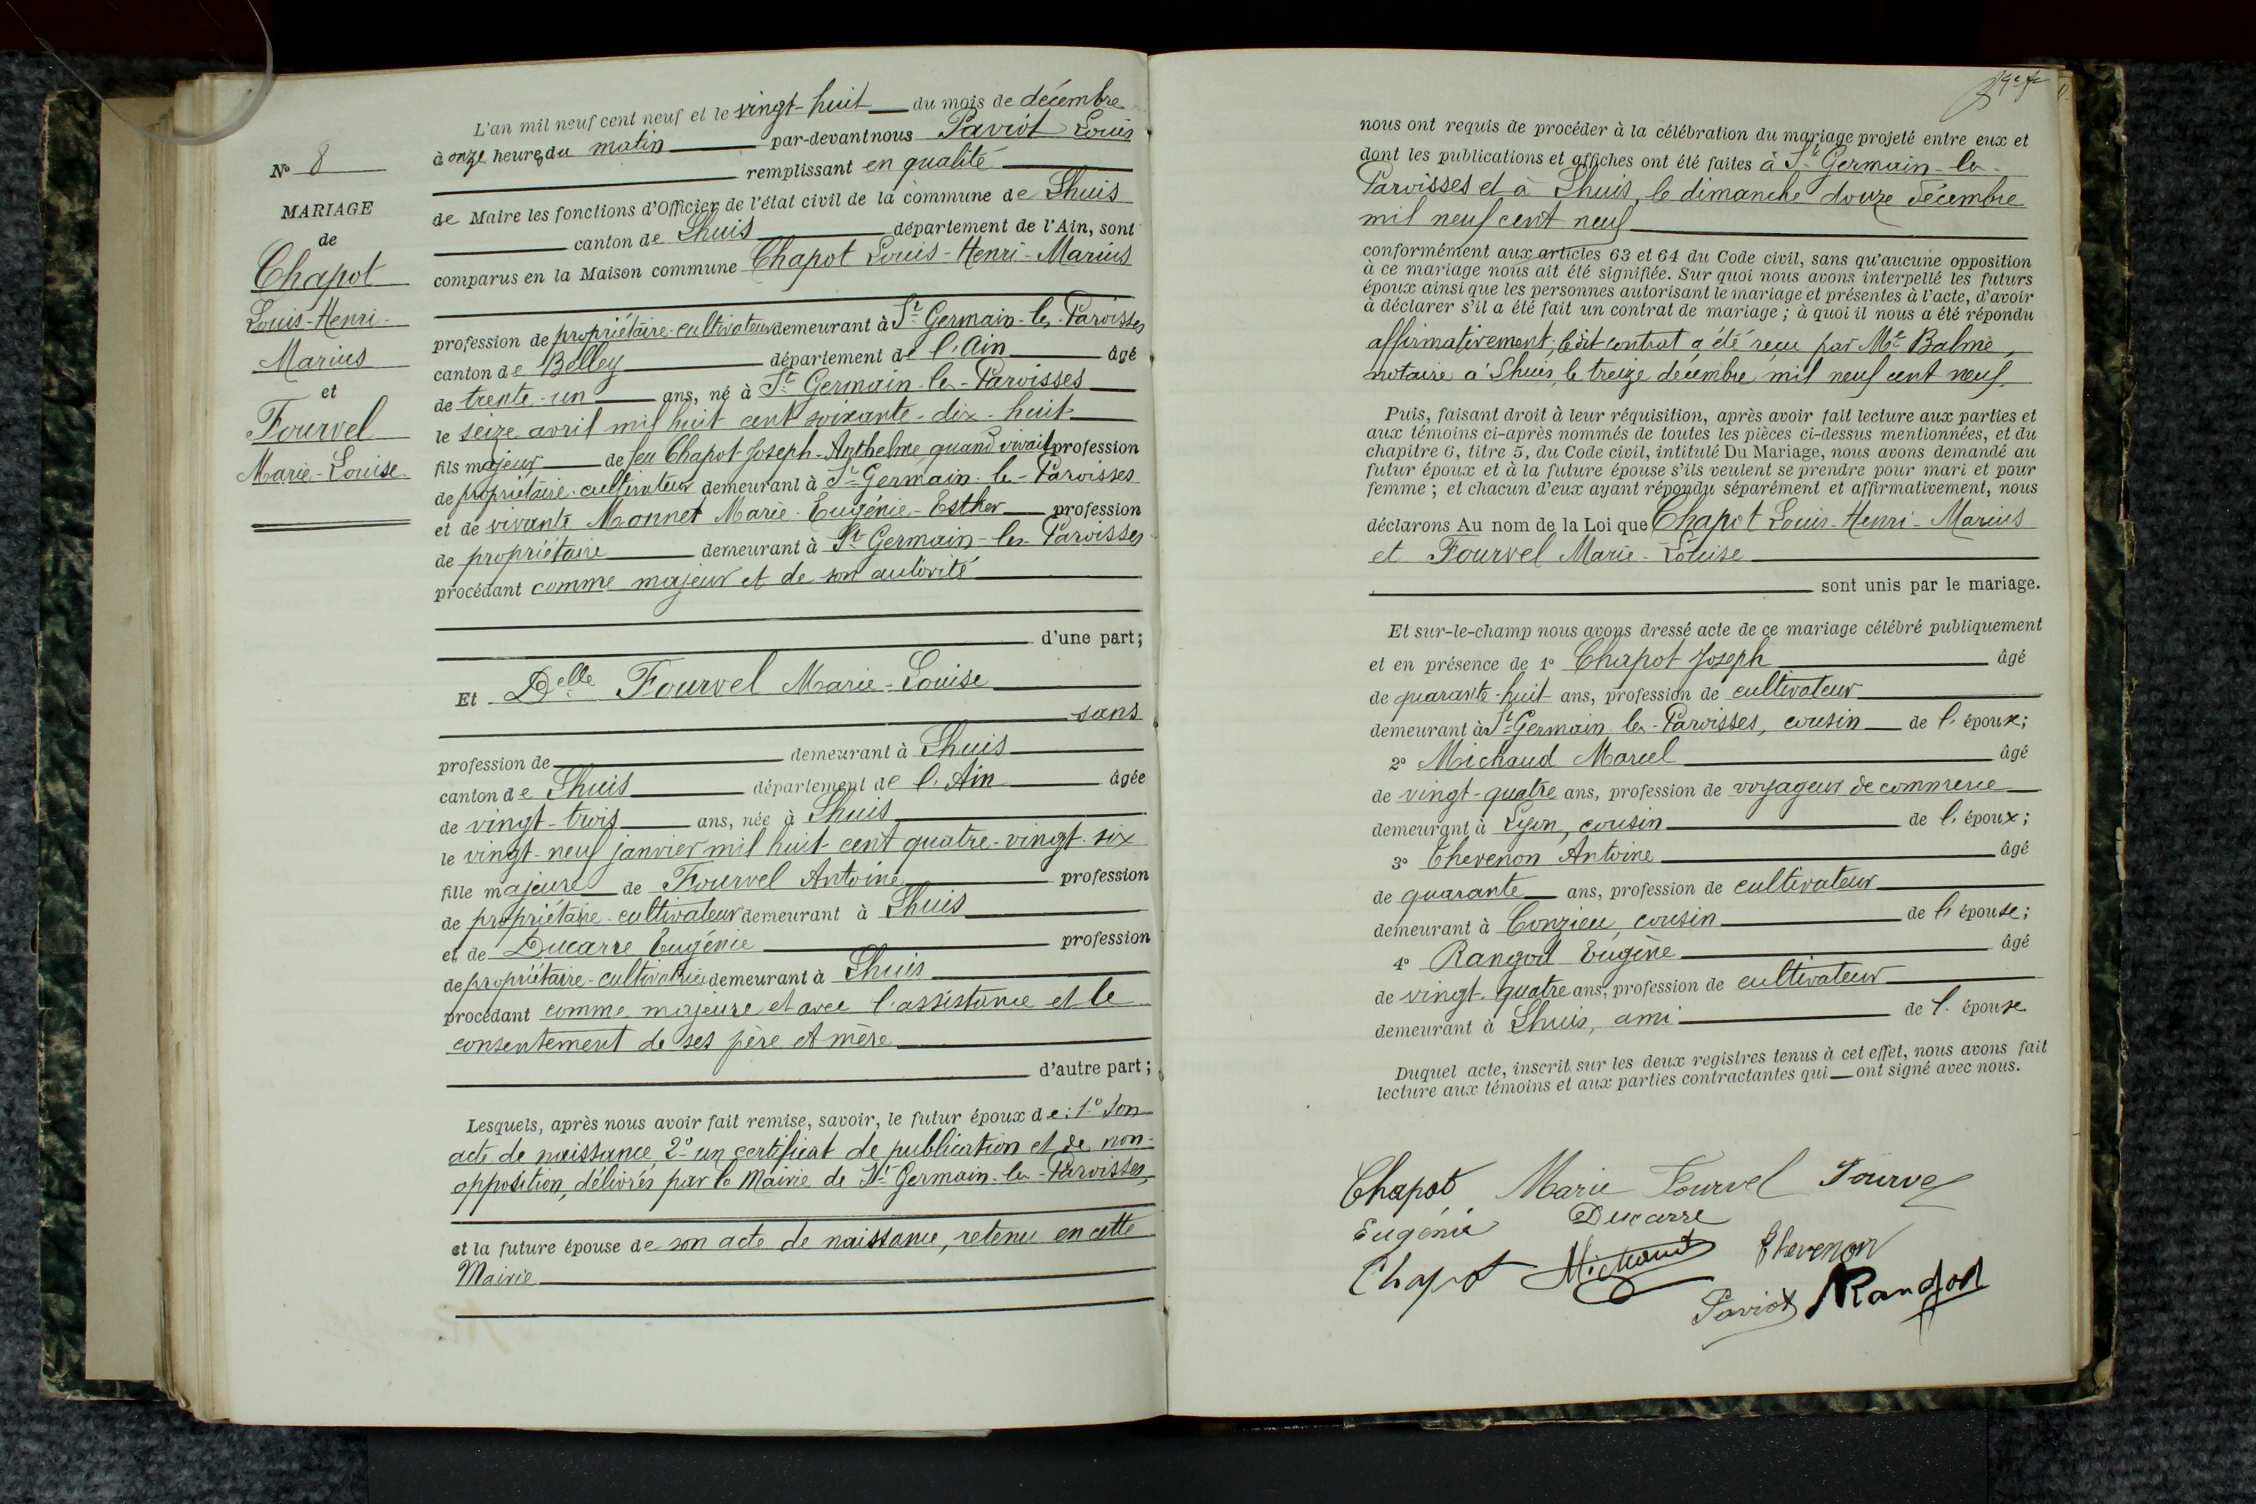 N° 8
MARIAGE
de
Chapot
Louis-Henri-
Marius
et
Fourvel
Marie-Louise
L'an mil neuf cent neuf et le vingt-huit du mois de décembre
à onze heures du matin par-devant nous Paviot Louis
remplissant en qualité
de Maire les fonctions d'Officier de l'état civil de la commune de Lhuis
canton de Lhuis département de l'Ain, sont
comparus en la Maison commune Chapot Louis-Henri-Marius
profession de propriétaire-cultivateur demeurant à St Germain-les-Paroisses
canton de Belley département de l'Ain âgé
de trente-un ans, né à St Germain-les-Paroisses
le seize avril mil huit cent soixante-dix-huit
fils majeur de feu Chapot Joseph-Anthelme, quand vivait profession
de propriétaire-cultivateur demeurant à St Germain-les-Paroisses
et de vivante Monnet Marie-Eugénie-Esther profession
de propriétaire demeurant à St Germain-les-Paroisses
procédant comme majeur et de son autorité
d'une part;
Et Delle Fourvel Marie-Louise
sans
profession de demeurant à Lhuis
canton de Lhuis département de l'Ain âgée
de vingt-trois ans, née à Lhuis
le vingt-neuf janvier mil huit cent quatre-vingt-six
fille majeure de Fourvel Antoine profession
de propriétaire-cultivateur demeurant à Lhuis
et de Ducarre Eugénie profession
de propriétaire-cultivatrice demeurant à Lhuis
procédant comme majeure et avec l'assistance et le
consentement de ses père et mère
d'autre part;
Lesquels, après nous avoir fait remise, savoir, le futur époux de: 1° Son
acte de naissance 2° un certificat de publication et de non-
opposition, délivrés par la Mairie de St Germain-les-Paroisses,
et la future épouse de son acte de naissance, retenu en cette
Mairie
nous ont requis de procéder à la célébration du mariage projeté entre eux et
dont les publications et affiches ont été faites à St Germain-les-
Paroisses et à Lhuis, le dimanche douze Décembre
mil neuf cent neuf
conformément aux articles 63 et 64 du Code civil, sans qu'aucune opposition
à ce mariage nous ait été signifiée. Sur quoi nous avons interpellé les futurs
époux ainsi que les personnes autorisant le mariage et présentes à l'acte, d'avoir
à déclarer s'il a été fait un contrat de mariage; à quoi il nous a été répondu
affirmativement, ledit contrat a été reçu par Me Balme,
notaire à Lhuis, le treize décembre mil neuf cent neuf.
Puis, faisant droit à leur réquisition, après avoir fait lecture aux parties et
aux témoins ci-après nommés de toutes les pièces ci-dessus mentionnées, et du
chapitre 6, titre 5, du Code civil, intitulé Du Mariage, nous avons demandé au
futur époux et à la future épouse s'ils veulent se prendre pour mari et pour
femme; et chacun d'eux ayant répondu séparément et affirmativement, nous
déclarons Au nom de la Loi que Chapot Louis-Henri-Marius
et Fourvel Marie-Louise
sont unis par le mariage.
Et sur-le-champ nous avons dressé acte de ce mariage célébré publiquement
et en présence de 1° Chapot Joseph âgé
de quarante-huit ans, profession de cultivateur
demeurant à St Germain les-Paroisses, cousin de l'époux;
2° Michaud Marcel âgé
de vingt-quatre ans, profession de voyageur de commerce
demeurant à Lyon, cousin de l'époux;
3° Thevenon Antoine âgé
de quarante ans, profession de cultivateur
demeurant à Conzieu, cousin de l'épouse;
4° Rangod Eugène âgé
de vingt-quatre ans, profession de cultivateur
demeurant à Lhuis, ami de l'épouse
Duquel acte, inscrit sur les deux registres tenus à cet effet, nous avons fait
lecture aux témoins et aux parties contractantes qui ont signé avec nous.
Chapot Marie Fourvel Fourvel
Eugénie Ducarre
Chapot Michaud Thevenon
Paviot Rangod